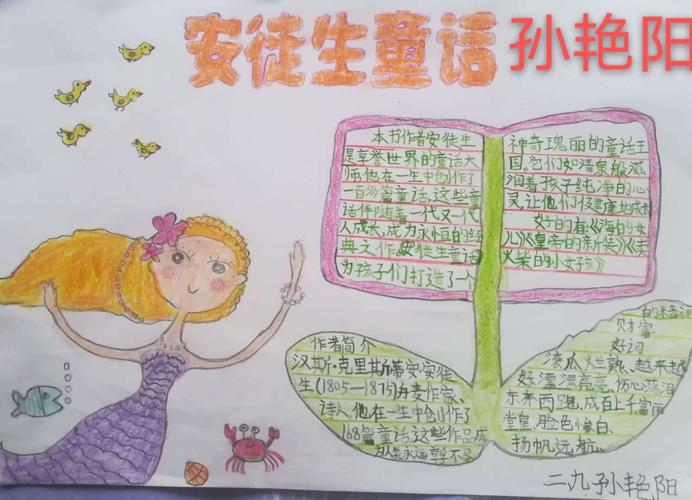 安徒生童话
孙艳阳
本书作者安徒生
是享誉世界的童话大
师,他在一生中创作了
一百多篇童话,这些童
话伴随着一代又一代
人成长,成为永恒的经
典之作,安徒生童话
为孩子们打造了一个
神奇瑰丽的童话王
国。它们如清泉般滋
润着孩子纯净的心
灵,让他们健康地成长
好的有《海的女
儿》《皇帝的新装》《卖
火柴的小女孩》
作者简介
汉斯·克里斯蒂安·安徒
生(1805—1875)丹麦作家、
诗人,他在一生中创作了
168篇童话这些作品成
为人类永远
财富
好词
滚瓜烂熟、越来越
好 漂漂亮亮、伤心落泪
东奔西跑,成百上千富丽
堂皇、脸色惨白、
扬帆远航、
二九孙艳阳